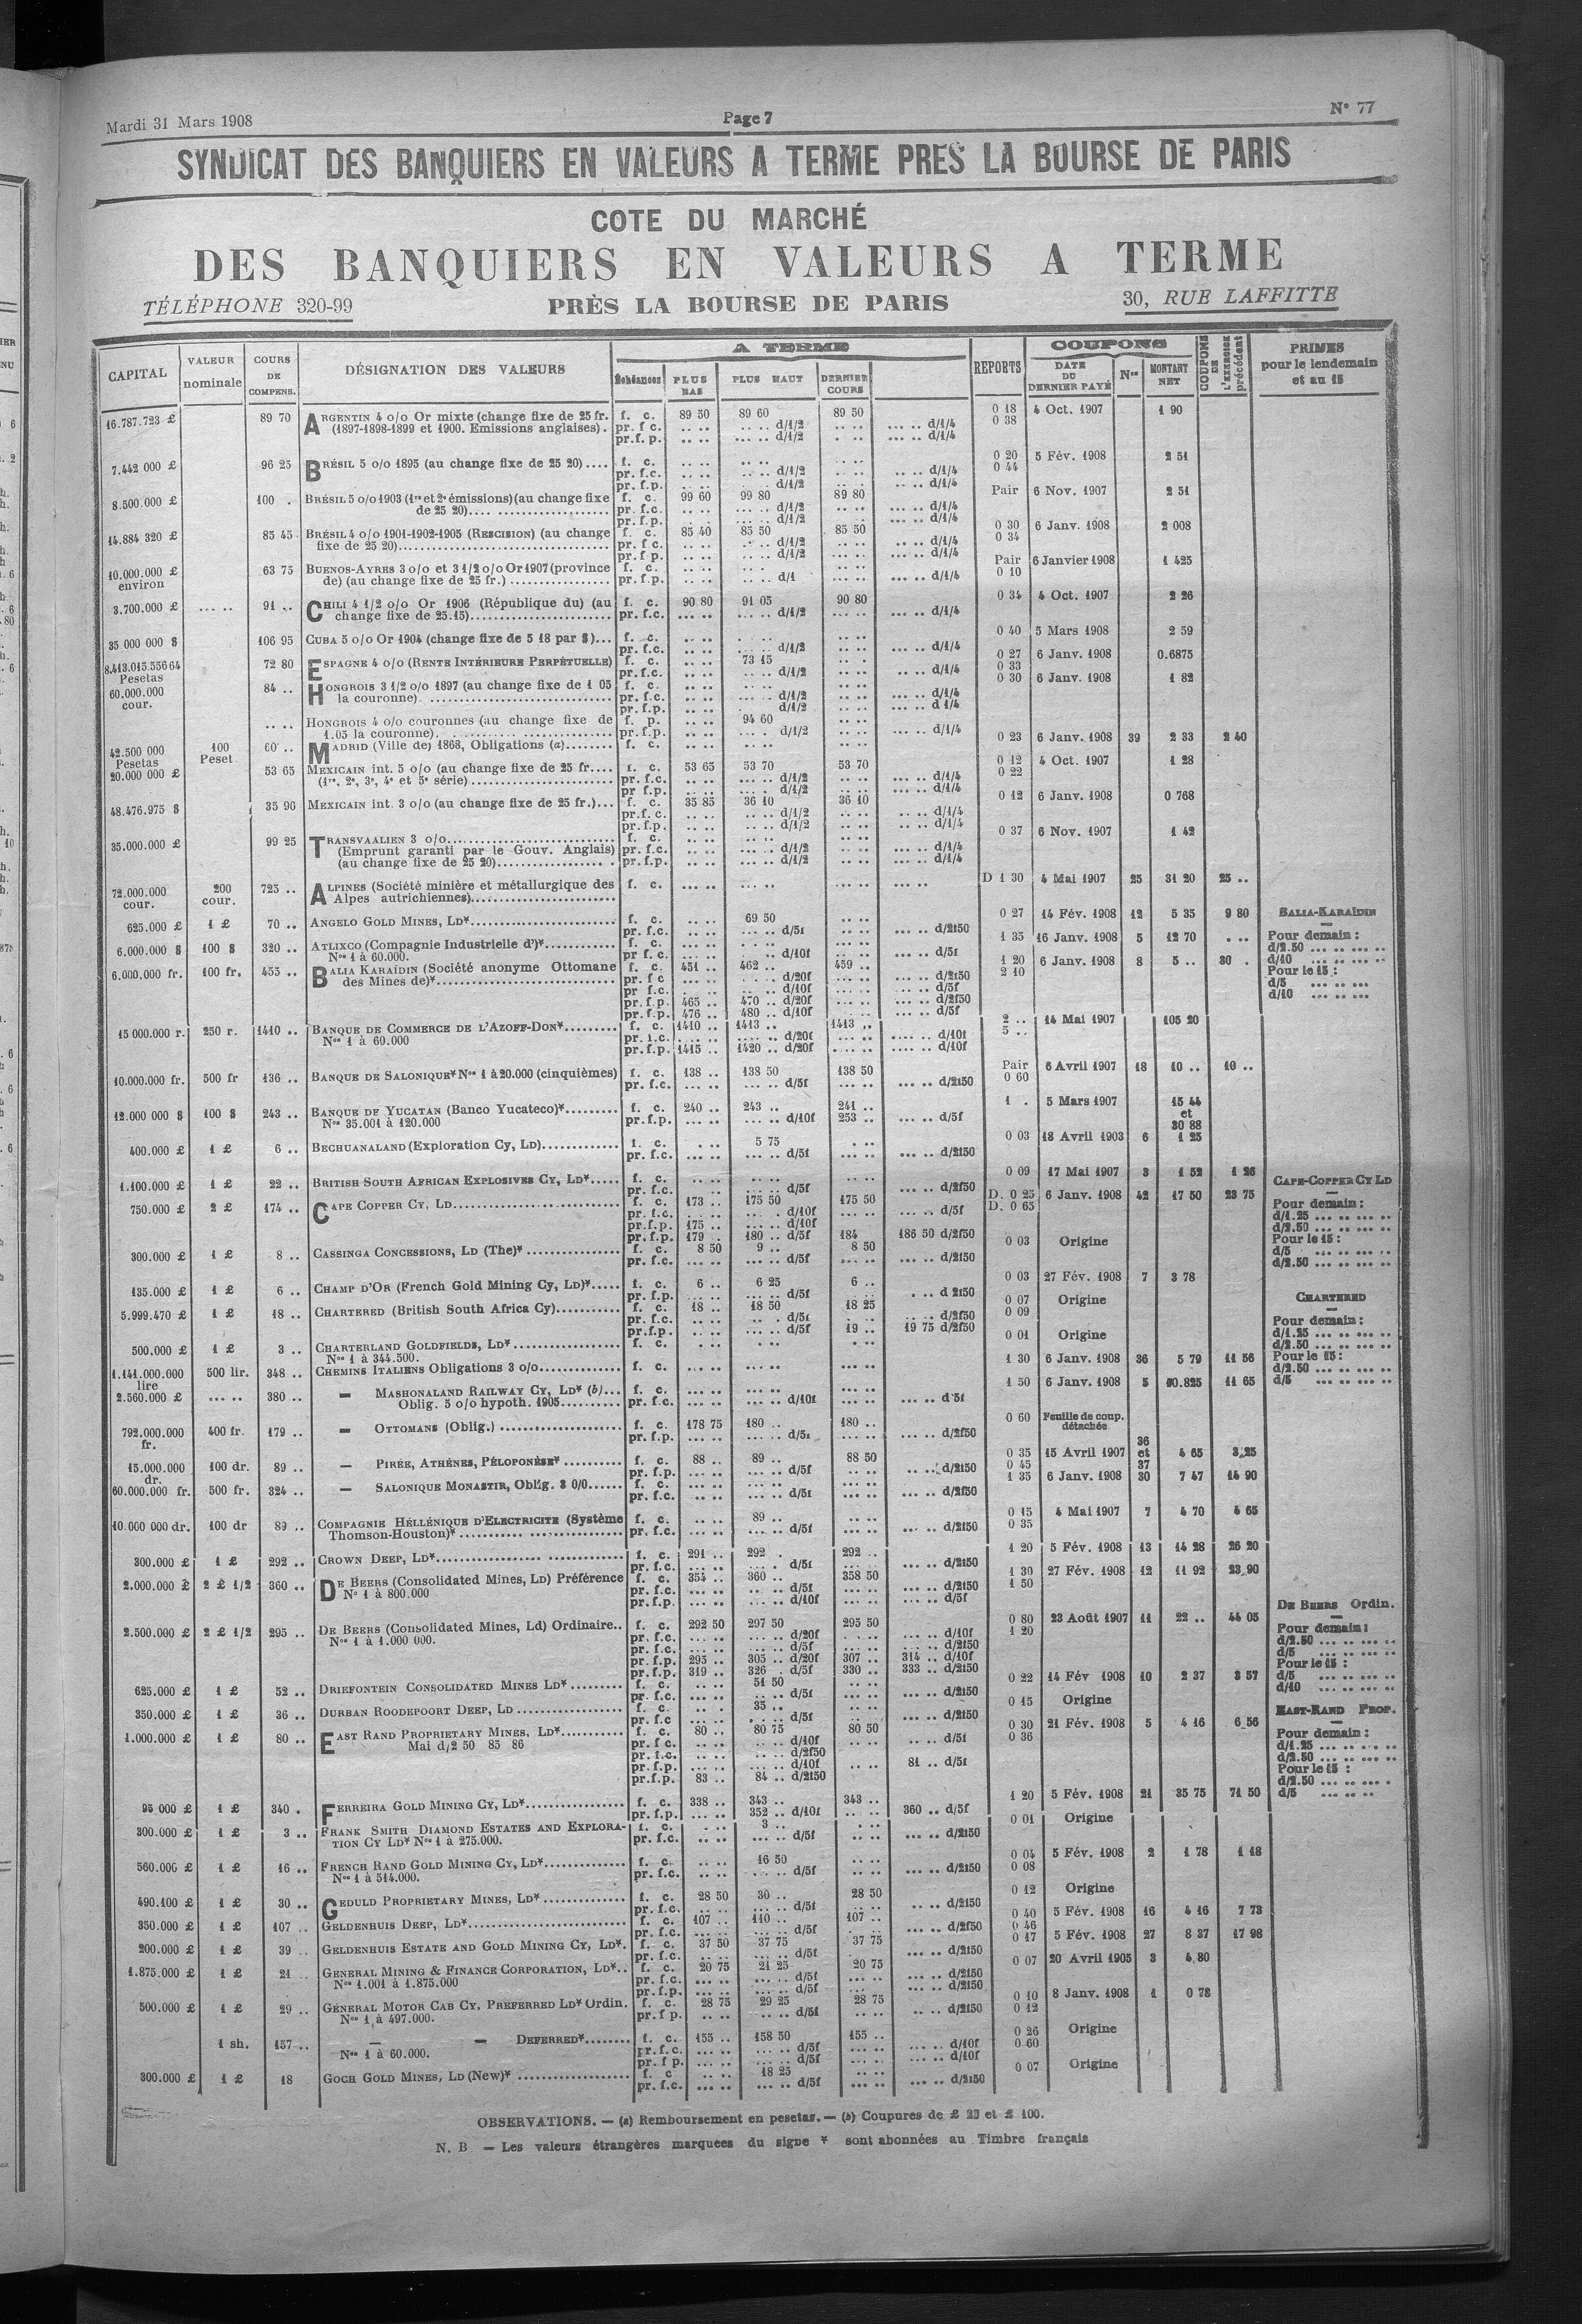 Mardi 31 Mars 1908
Page 7
N° 77
SYNDICAT DES BANQUIERS EN VALEURS A TERME PRES LA BOURSE DE PARIS
COTE DU MARCHÉ
DES BANQUIERS EN VALEURS A TERME
TÉLÉPHONE 320-99
PRÈS LA BOURSE DE PARIS
30, RUE LAFFITTE
CAPITAL
VALEUR nominale
COURS DE COMPENS.
DÉSIGNATION DES VALEURS
A TERME
Échéances
PLUS BAS
PLUS HAUT
DERNIER COURS
REPORTS
COUPONS
DATE DU DERNIER PAYÉ
Nos
MONTANT NET
COUPONS DE L'EXERCICE précédent
PRIMES pour le lendemain et au 15
16.787.723 £ 89 70 ARGENTIN 4 o/o Or mixte (change fixe de 25 fr. f. c. 89 50 89 60 89 50 0 18 4 Oct. 1907 1 90
(1897-1898-1899 et 1900. Emissions anglaises). pr. f c. d/1/2 d/1/4 0 38
pr.f. p. d/1/2 d/1/4
7.442 000 £ 96 25 BRÉSIL 5 o/o 1895 (au change fixe de 25 20).... f. c. 0 20 5 Fév. 1908 2 51
pr. f.c. d/1/2 d/1/4 0 44
pr. f.p. d/1/2 d/1/4
8.500.000 £ 100 . BRÉSIL 5 o/o 1903 (1re et 2e émissions) (au change fixe f. c. 99 60 99 80 89 80 Pair 6 Nov. 1907 2 51
de 25 20) pr. f.c. d/1/2 d/1/4
pr. f.p. d/1/2 d/1/4
14.884 320 £ 85 45 BRÉSIL 4 o/o 1901-1902-1905 (RESCISION) (au change f. c. 85 40 85 50 85 50 0 30 6 Janv. 1908 2 008
fixe de 25 20) pr. f c. d/1/2 d/1/4 0 34
pr. f p. d/1/2 d/1/4
10.000.000 £ environ 63 75 BUENOS-AYRES 3 o/o et 3 1/2 o/o Or 1907 (province f. c. Pair 6 Janvier 1908 1 425
de) (au change fixe de 25 fr.) pr. f.p. d/1 d/1/4 0 10
3.700.000 £ 91 .. CHILI 4 1/2 o/o Or 1906 (République du) (au f. c. 90 80 91 05 90 80 0 34 4 Oct. 1907 2 26
change fixe de 25.15) pr. f.c. d/1/2 d/1/4
35 000 000 $ 106 95 CUBA 5 o/o Or 1904 (change fixe de 5 18 par $)... f. c. 0 40 5 Mars 1908 2 59
pr. f.c. d/1/2 d/1/4
8.413.015.556 64 Pesetas 72 80 ESPAGNE 4 o/o (RENTE INTÉRIEURE PERPÉTUELLE) f. c. 73 15 0 27 6 Janv. 1908 0.6875
pr. f.c. d/1/2 d/1/4 0 33
60.000.000 cour. 84 .. HONGROIS 3 1/2 o/o 1897 (au change fixe de 1 05 f. c. 0 30 6 Janv. 1908 1 82
la couronne). pr. f.c. d/1/2 d/1/4
pr. f.p. d/1/2 d 1/4
HONGROIS 4 o/o couronnes (au change fixe de f. p. 94 60
1.05 la couronne). pr. f.p. d/1/2 d/1/4
42.500 000 Pesetas 100 Peset. 60 .. MADRID (Ville de) 1868, Obligations (a) f. c. 0 23 6 Janv. 1908 39 2 33 2 40
20.000 000 £ 53 65 MEXICAIN int. 5 o/o (au change fixe de 25 fr.... f. c. 53 65 53 70 53 70 0 12 4 Oct. 1907 1 28
(1re, 2e, 3e, 4e et 5e série) pr. f.c. d/1/2 d/1/4 0 22
pr f.p. d/1/2 d/1/4
48.476.975 $ 35 90 MEXICAIN int. 3 o/o (au change fixe de 25 fr.)... f. c. 35 85 36 10 36 10 0 12 6 Janv. 1908 0 768
pr. f. c. d/1/2 d/1/4
pr. f.p. d/1/2 d/1/4
35.000.000 £ 99 25 TRANSVAALIEN 3 o/o f. c. 0 37 6 Nov. 1907 1 42
(Emprunt garanti par le Gouv. Anglais) pr. f.c. d/1/2 d/1/4
(au change fixe de 25 20) pr. f.p. d/1/2 d/1/4
72.000.000 cour. 200 cour. 725 .. ALPINES (Société minière et métallurgique des f. c. D 1 30 4 Mai 1907 25 31 20 25 ..
Alpes autrichiennes)
625.000 £ 1 £ 70 .. ANGELO GOLD MINES, LD* f. c. 69 50 0 27 14 Fév. 1908 12 5 35 9 80
pr. f.c. d/5f d/2f50
6.000.000 $ 100 $ 320 .. ATLIXCO (Compagnie Industrielle d')* f. c. 1 35 16 Janv. 1908 5 12 70
Nos 1 à 60.000. pr f. c. d/10f d/5f
6.000.000 fr. 100 fr. 455 .. BALIA KARAÏDIN (Société anonyme Ottomane f. c. 451 .. 462 .. 459 .. 1 20 6 Janv. 1908 8 5 .. 30 .
des Mines de)* pr. f c d/20f d/2f50 2 10
pr f.c. d/10f d/5f
pr. f.p. 465 .. 470 .. d/20f d/2f50
pr. f.p. 476 .. 480 .. d/10f d/5f
BALIA-KARAÏDIN
Pour demain :
d/2.50
d/10
Pour le 15 :
d/5
d/10
15 000.000 r. 250 r. 1410 .. BANQUE DE COMMERCE DE L'AZOFF-DON* f. c. 1410 .. 1413 .. 1413 .. 2 .. 14 Mai 1907 105 20
Nos 1 à 60.000 pr. f.c. d/20f d/10f 5 ..
pr. f.p. 1415 .. 1420 .. d/20f d/10f
10.000.000 fr. 500 fr 136 .. BANQUE DE SALONIQUE* Nos 1 à 20.000 (cinquièmes) f. c. 138 .. 138 50 138 50 Pair 6 Avril 1907 18 10 .. 10 ..
pr. f.c. d/5f d/2f50 0 60
12.000 000 $ 100 $ 243 .. BANQUE DE YUCATAN (Banco Yucateco)* f. c. 240 .. 243 .. 241 .. 1 . 5 Mars 1907 15 44 et 30 88
Nos 35.001 à 120.000 pr. f.p. d/10f 253 .. d/5f
400.000 £ 1 £ 6 .. BECHUANALAND (Exploration Cy, LD) f. c. 5 75 0 03 18 Avril 1903 6 1 25
pr. f.c. d/5f d/2f50
1.100.000 £ 1 £ 22 .. BRITISH SOUTH AFRICAN EXPLOSIVES CY, LD* f. c. 0 09 17 Mai 1907 3 1 52 1 26
pr. f.c. d/5f d/2f50
750.000 £ 2 £ 174 .. CAPE COPPER CY, LD f. c. 173 .. 175 50 175 50 D. 0 25 6 Janv. 1908 42 17 50 23 75
pr. f.c. d/10f d/5f D. 0 65
pr. f.p. 175 .. d/10f
pr. f.p. 179 .. 180 .. d/5f 184 186 50 d/2f50
CAPE-COPPER CY LD
Pour demain :
d/1.25
d/2.50
Pour le 15 :
d/5
d/2.50
300.000 £ 1 £ 8 .. CASSINGA CONCESSIONS, LD (The)* f. c. 8 50 9 .. 8 50 0 03 Origine
pr. f.c. d/5f d/2f50
135.000 £ 1 £ 6 .. CHAMP D'OR (French Gold Mining Cy, LD)* f. c. 6 .. 6 25 6 .. 0 03 27 Fév. 1908 7 3 78
pr. f.p. d/5f d 2f50
5.999.470 £ 1 £ 18 .. CHARTERED (British South Africa Cy) f. c. 18 .. 18 50 18 25 0 07 Origine
pr. f.c. d/5f d/2f50 0 09
pr.f.p. d/5f 19 .. 19 75 d/2f50
CHARTERED
Pour demain :
d/1.25
d/2.50
Pour le 15 :
d/2.50
d/5
500.000 £ 1 £ 3 .. CHARTERLAND GOLDFIELDS, LD* f. c. 0 01 Origine
Nos 1 à 344.500.
1.141.000.000 lire 500 lir. 348 .. CHEMINS ITALIENS Obligations 3 o/o f. c. 1 30 6 Janv. 1908 36 5 79 11 56
2.560.000 £ 380 .. — MASHONALAND RAILWAY CY, LD* (b)... f. c. 1 50 6 Janv. 1908 5 10.825 11 65
Oblig. 5 o/o hypoth. 1905 pr. f.c. d/10f d'5f
792.000.000 fr. 400 fr. 179 .. — OTTOMANS (Oblig.) f. c. 178 75 180 .. 180 .. 0 60 Feuille de coup. détachée
pr. f.p. d/5f d/2f50
15.000.000 dr. 100 dr. 89 .. — PIRÉE, ATHÈNES, PÉLOPONÈSE* f. c. 88 .. 89 .. 88 50 0 35 15 Avril 1907 36 et 37 4 65 3,25
pr. f.p. d/5f d/2f50 0 45
60.000.000 fr. 500 fr. 324 .. — SALONIQUE MONASTIR, Oblig. 3 0/0 f. c. 1 35 6 Janv. 1908 30 7 47 14 90
pr. f.c. d/5f d/2f50
10.000 000 dr. 100 dr 89 .. COMPAGNIE HÉLLÉNIQUE D'ELECTRICITE (Système f. c. 89 .. 0 15 4 Mai 1907 7 4 70 4 65
Thomson-Houston)* pr. f.c. d/5f d/2f50 0 35
300.000 £ 1 £ 292 .. CROWN DEEP, LD* f. c. 291 .. 292 . 292 .. 1 20 5 Fév. 1908 13 14 28 26 20
pr. f.c. d/5f d/2f50
2.000.000 £ 2 £ 1/2 360 .. DE BEERS (Consolidated Mines, LD) Préférence f. c. 354 .. 360 .. 358 50 1 30 27 Fév. 1908 12 11 92 23,90
No 1 à 800.000 pr. f.c. d/5f d/2f50 1 50
pr. f.p. d/10f d/5f
2.500.000 £ 2 £ 1/2 295 .. DE BEERS (Consolidated Mines, Ld) Ordinaire.. f. c. 292 50 297 50 295 50 0 80 23 Août 1907 11 22 .. 44 05
Nos 1 à 1.000 000. pr. f.c. d/20f d/10f 1 20
pr. f.c. d/5f d/2f50
pr. f.p. 295 .. 305 .. d/20f 307 .. 314 .. d/10f
pr. f.p. 319 .. 326 . d/5f 330 .. 333 .. d/2f50
DE BEERS Ordin.
Pour demain :
d/2.50
d/5
Pour le 15 :
d/5
d/10
625.000 £ 1 £ 52 .. DRIEFONTEIN CONSOLIDATED MINES LD* f. c. 51 50 0 22 14 Fév 1908 10 2 37 3 57
pr. f.c. d/5f d/2f50
350.000 £ 1 £ 36 .. DURBAN ROODEPOORT DEEP, LD f. c. 35 .. 0 15 Origine
pr. f.c d/5f d/2f50
1.000.000 £ 1 £ 80 .. EAST RAND PROPRIETARY MINES, LD* f. c. 80 .. 80 75 80 50 0 30 21 Fév. 1908 5 4 16 6,56
Mai d/2 50 85 86 pr. f c. d/10f d/5f 0 36
pr. f.c. d/2f50
pr. f.p. d/10f 81 .. d/5f
pr.f.p. 83 .. 84 .. d/2f50
EAST-RAND PROP.
Pour demain :
d/1.25
d/2.50
Pour le 15 :
d/2.50
d/5
95 000 £ 1 £ 340 . FERREIRA GOLD MINING CY, LD* f. c. 338 .. 343 .. 343 .. 1 20 5 Fév. 1908 21 35 75 71 50
pr. f.p. 352 .. d/10f 360 .. d/5f
300.000 £ 1 £ 3 .. FRANK SMITH DIAMOND ESTATES AND EXPLORA- f. c. 3 .. 0 01 Origine
TION CY LD* Nos 1 à 275.000. pr. f.c. d/5f d/2f50
560.000 £ 1 £ 16 .. FRENCH RAND GOLD MINING CY, LD* f. c. 16 50 0 04 5 Fév. 1908 2 1 78 1 18
Nos 1 à 514.000. pr. f.c. d/5f d/2f50 0 08
490.100 £ 1 £ 30 .. GEDULD PROPRIETARY MINES, LD* f. c. 28 50 30 .. 28 50 0 12 Origine
pr. f.c. d/5f d/2f50
350.000 £ 1 £ 107 .. GELDENHUIS DEEP, LD* f. c. 107 .. 110 .. 107 .. 0 40 5 Fév. 1908 16 4 16 7 73
pr. f.c. d/5f d/2f50 0 46
200.000 £ 1 £ 39 .. GELDENHUIS ESTATE AND GOLD MINING CY, LD*. f. c. 37 50 37 75 37 75 0 17 5 Fév. 1908 27 8 37 17 98
pr. f.c. d/5f d/2f50
1.875.000 £ 1 £ 21 .. GENERAL MINING & FINANCE CORPORATION, LD*.. f. c. 20 75 21 25 20 75 0 07 20 Avril 1905 3 4,80
Nos 1.001 à 1.875.000 pr. f.c. d/5f d/2f50
pr. f.c. d/5f d/2f50
500.000 £ 1 £ 29 .. GÉNÉRAL MOTOR CAB CY, PREFERRED LD* Ordin. f. c. 28 75 29 25 28 75 0 10 8 Janv. 1908 1 0 78
Nos 1 à 497.000. pr.f p. d/5f d/2f50 0 12
1 sh. 157 .. — — DEFERRED* f. c. 155 .. 158 50 155 .. 0 26 Origine
Nos 1 à 60.000. pr.f.c. d/5f d/10f 0 60
pr. f p. d/5f d/10f
300.000 £ 1 £ 18 GOCH GOLD MINES, LD (New)* f. c 18 25 0 07 Origine
pr. f.c. d/5f d/2f50
OBSERVATIONS. — (a) Remboursement en pesetas. — (b) Coupures de £ 20 et £ 100.
N. B — Les valeurs étrangères marquées du signe * sont abonnées au Timbre français